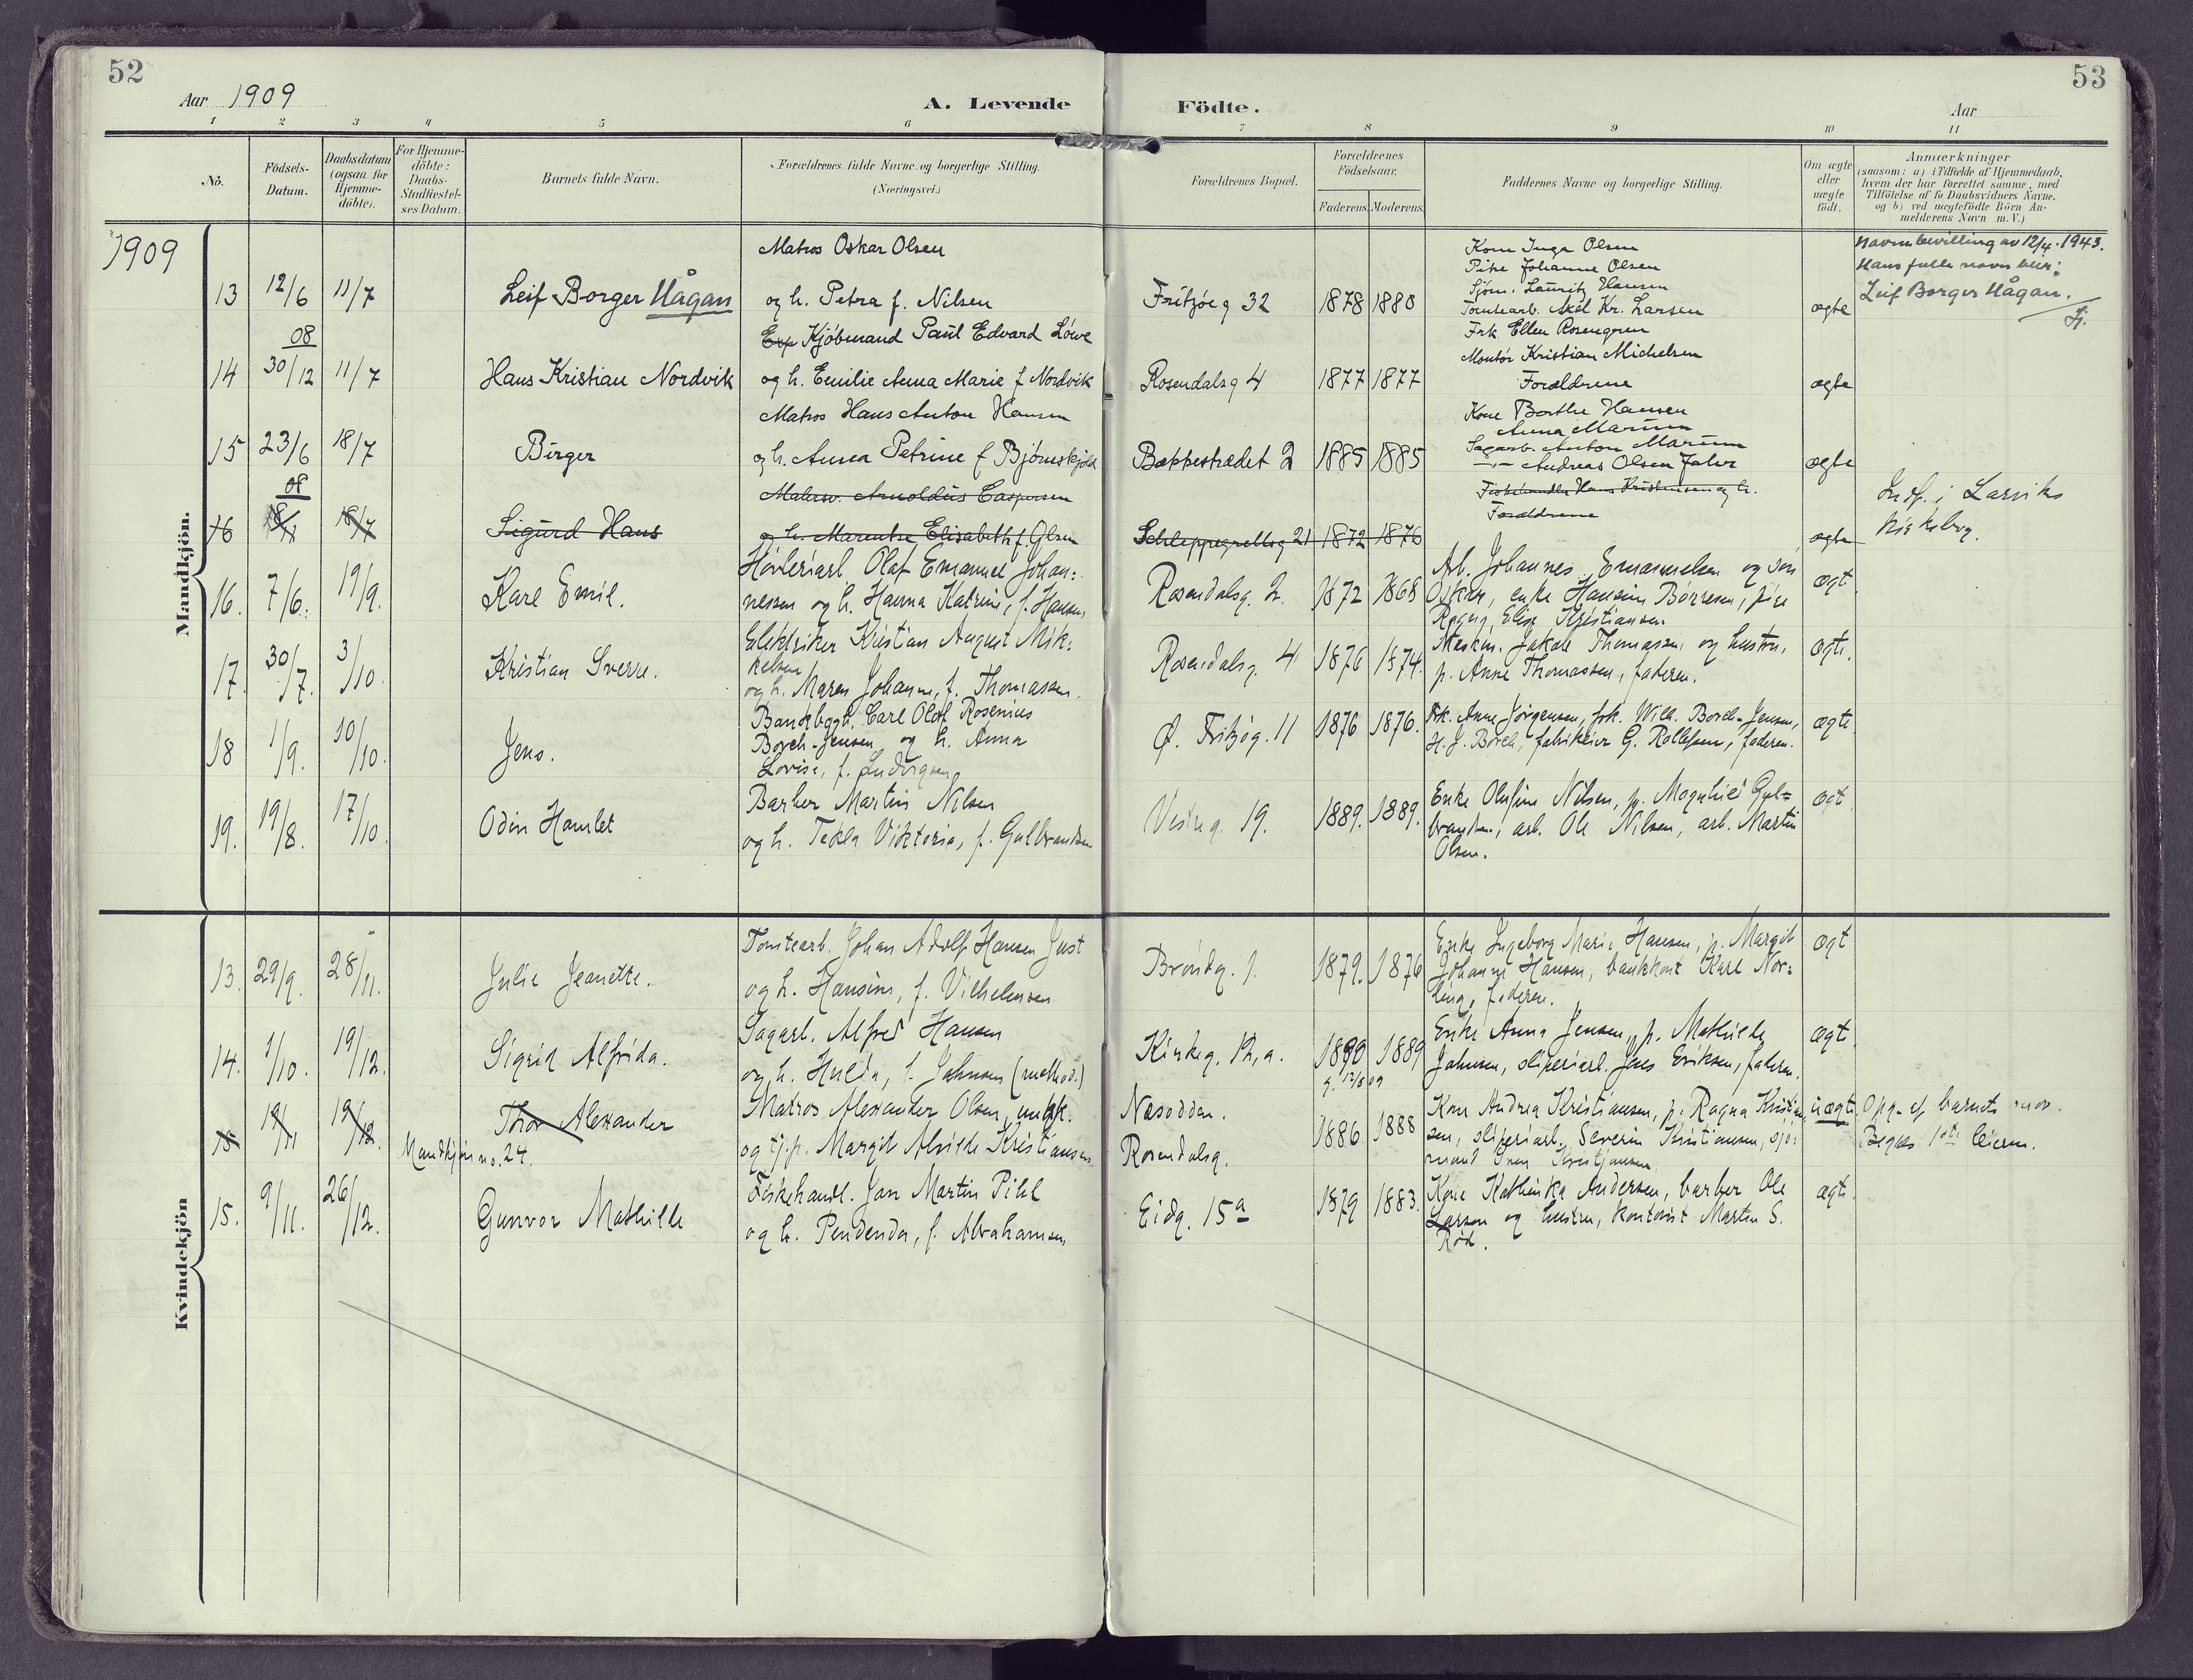 52
53
Aar 1909
A. Levende
Födte.
Aar
1 2 3 4 5 6 7 8 9 10 11
No.
Födsels-
Datum.
Daabsdatum
(ogsaa for
Hjemme-
döbte).
For Hjemme-
döbte:
Daabs-
Stadfæstel-
ses Datum.
Barnets fulde Navn.
Forældrenes fulde Navne og borgerlige Stilling.
(Næringsvei.)
Forældrenes Bopæl.
Forældrenes
Födselsaar.
Faderens. Moderens.
Faddernes Navne og borgerlige Stilling.
Om ægte
eller
uægte
födt.
Anmærkninger
(saasom: a) i Tilfælde af Hjemmedaab,
hvem der har forrettet samme, med
Tilföielse af to Daabsvidners Navne.
og b) ved uægtefödte Börn An-
melderens Navn m. V.)
1909
Mandkjön.
13 12/6 11/7
Leif Borger Hågan
Matros Oskar Olsen
og h. Petra f. Nilsen
Fritzøeg 32
1878 1880
Kone Inga Olsen
Pike Johanne Olsen
Sjøm. Lauritz Hansen
Tomtearb. Axel Kr. Larsen
ægte
Navnebevilling av 12/4. 1943.
Hans fulle navn blir:
Leif Borger Hågan.
08
14 30/12 11/7
Hans Kristian Nordvik
Kjöbmand Paul Edvard Löwe
og h. Emilie Anna Marie f Nordvik
Rosendalsg 4
1877 1877
Frk Ellen Rosengren
Montör Kristian Michelsen
Forældrene
ægte
15 23/6 18/7
Birger
Matros Hans Anton Hansen
og h. Anna Petrine f Bjørneskjold
Bakkestrædet 2
1885 1885
Kone Berthe Hansen
Anna Marum
Sagarb. Anton Marum
Andreas Olsen Faler
ægte
08
16 18/7
Sigurd Hans
Malersv. Arnoldus Caspersen
og h. Marentze Elisabeth f. Olsen
Schleppegrellsg 21
1872 1876
Fiskehandler Hans Kristensen og h.
Forældrene
ægte
Indf. i Larviks
kirkebog.
16. 7/6. 19/9.
Kare Emil.
Høvleriarb Olaf Emanuel Johan=
nessen og h. Hanna Katrine, f. Hansen
Rosendalsg. 2.
1872 1868
Arb. Johannes Emanuelsen og søn
Oskar, enke Hansine Børresen, pike
Ragna Elise Kristiansen
ægt.
17. 30/7. 3/10.
Kristian Sverre.
Elektriker Kristian August Mik=
kelsen
og h. Maren Johanne, f. Thomassen.
Rosendalsg. 4
1876 1874.
Maskin. Jakob Thomassen og hustru,
p. Anne Thomassen, faderen.
ægte.
18 1/9. 10/10.
Jens.
Bankbogh. Carl Olaf Rosenius
Borch-Jensen og h. Anna
Lovise, f. Ludvigsen
Ø. Fritzøg. 11
1876 1876.
Frk. Anne Jørgensen, frk. Wilh. Borch-Jensen,
H. J. Borch, fabrikeier G. Rollefsen, faderen.
ægte
19. 19/8. 17/10.
Odin Hamlet
Barber Martin Nilsen
og h. Tekla Viktoria, f. Gulbrandsen
Vesteg. 19.
1889. 1889.
Enke Olufine Nilsen, p. Magnhild Gul=
brandsen, arb. Ole Nilsen, arb. Martin
Olsen.
ægt
Kvindekjön
13. 29/9. 28/11.
Julie Jeanette.
Tomtearb. Johan Adolf Hansen Just
og h. Hansine, f. Vilhelmsen
Brøndg. 1.
1879. 1876
Enke Ingeborg Marie Hansen, p. Margit
Johanne Hansen, bankkont. Karl Nor=
ling, faderen.
ægt
14. 1/10. 19/12.
Sigrid Alfrida.
Sagarb. Alfred Hansen
og h. Hulda, f. Jahnsen (methos.)
Kirkeg. 12, a.
1890 1889
g. 12/6 09
Enke Anna Jensen, p. Mathilde
Jahnsen, sliperiarb. Jens Eriksen, faderen.
ægt
15 19/11 19/12.
Mandkjøn no. 24.
Thor Alexander
Matros Alexander Olsen, unkk.
og tj.p. Margit Alvilde Kristiansen
Næsodden.
Rosendalsg.
1886 1888
Kone Andrea Kristiansen, p. Ragna Kristian
sen, sliperiarb. Severin Kristiansen, sjø=
mand Sven Kristiansen.
uægt.
Opg. af barnets mor.
Begges 1ste leierm.
15. 9/11. 26/12.
Gunvor Mathilde
Fiskehandl. Jon Martin Pihl
og h. Pendenda, f. Abrahamsen
Eidg. 15a
1879 1883.
Kone Kathinka Andersen, barber Ole
Larsen og hustru, kontorist Martin S.
Rød.
ægte.